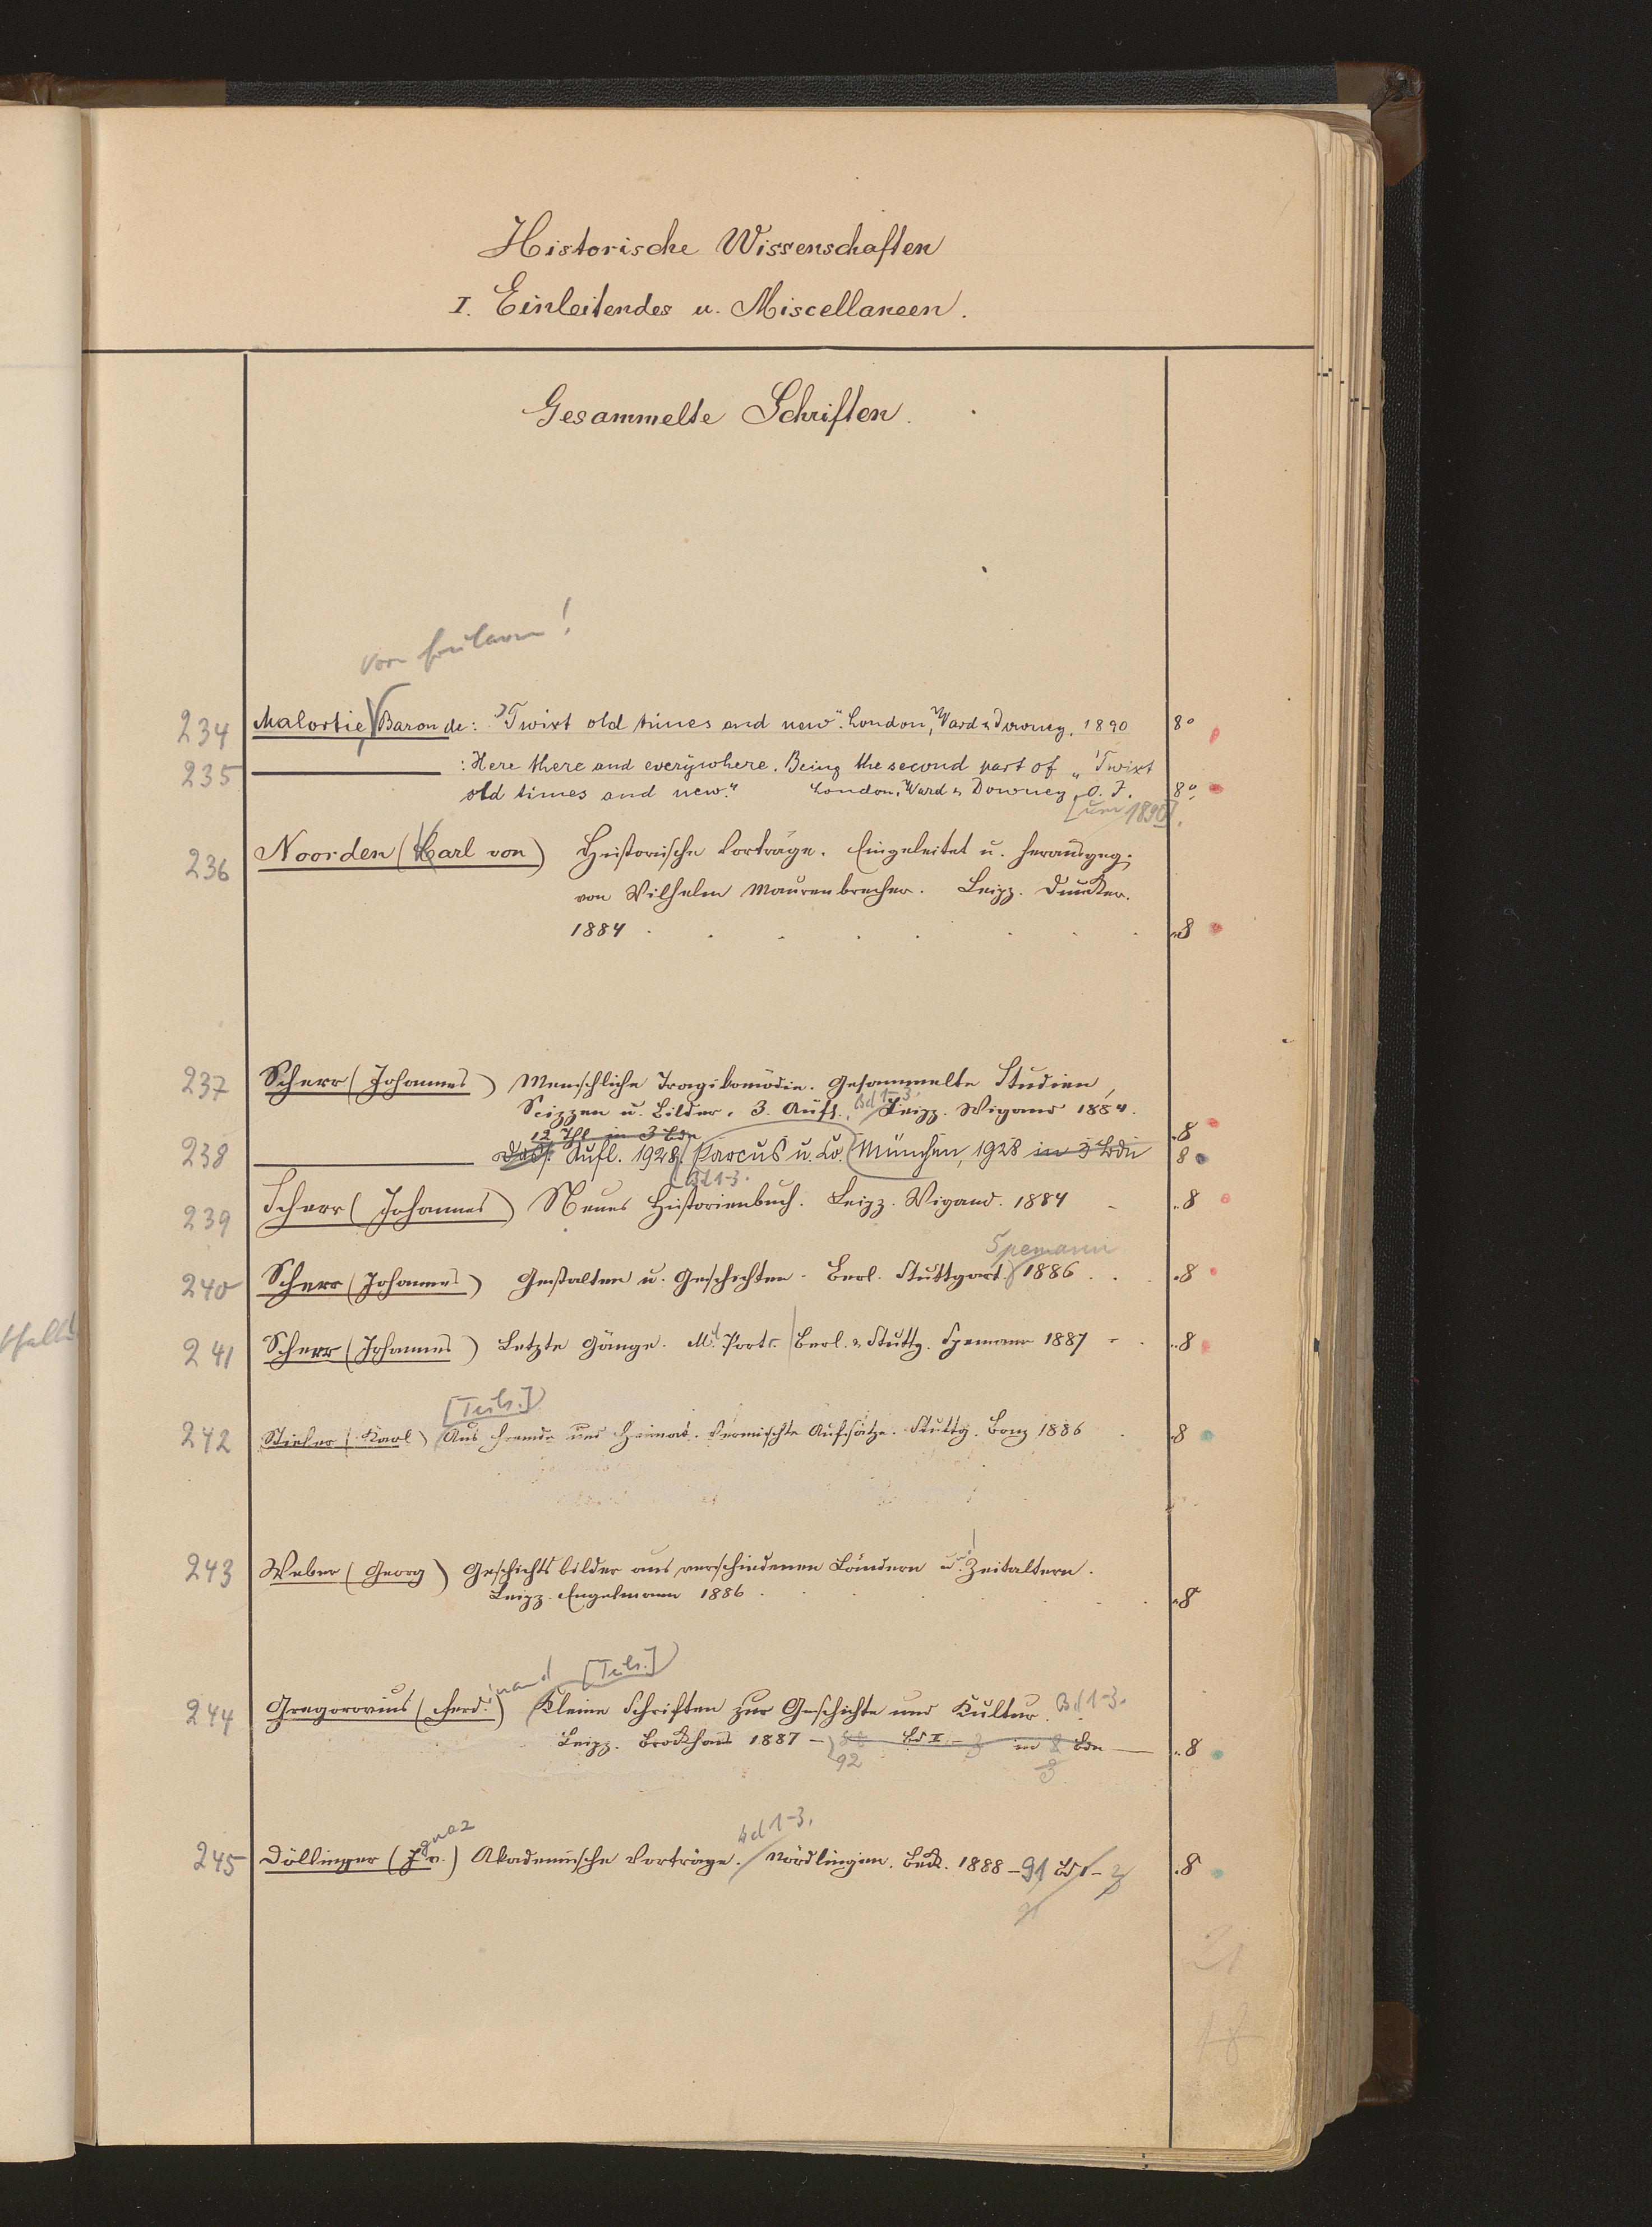 Historische Wissenschaften
I. Einleitendes u. Miscellaneen.
Gesammelte Schriften.
234 Malortie, Baron de: "Twixt old times and new". London, Ward & Downey, 1890 8°
235 : Here there and everywhere. Being the second part of „Twixt
old times and new." London, Ward & Downey, O. J. 8°
[um 1890].
236 Noorden (Karl von) Historische Vorträge. Eingeleitet u. herausgeg.
von Wilhelm Maurenbrecher. Leipz. Duncker.
1884 8
237 Scherr (Johannes) Menschliche Tragikomödie. Gesammelte Studien,
Bd 1-3.
Scizzen u. Bilder. 3. Aufl. Leipz. Wigand 1884.
12 Thl in 3 Bdn 8
238 Dass. Aufl. 1928. Parcus u. Co. München, 1928 in 3 Bdn 8
Bd 1-3.
239 Scherr (Johannes) Neues Historienbuch. Leipz. Wigand. 1884 8
Spemann
240 Scherr (Johannes) Gestalten u. Geschichten. Berl. Stuttgart. 1886 8
241 Scherr (Johannes) Letzte Gänge. Mt. Portr. Berl. & Stuttg. Spemann 1887 8
[Teils.]
242 Stieler (Karl) Aus Fremde und Heimat. Vermischte Aufsätze. Stuttg. Bonz 1886 8
243 Weber (Georg) Geschichtsbilder aus verschiedenen Ländern u. Zeitaltern.
Leipz. Engelmann 1886 8
inand [Teils.]
244 Gregorovius (Ferd.) Kleine Schriften zur Geschichte und Kultur. Bd 1-3.
Leipz. Brockhaus 1887 – 88 Bd I – 3 in 8 Bdn 8
92 3
gnaz Bd 1-3.
245 Döllinger (J. v.) Akademische Vorträge. Nördlingen. Beck. 1888 – 91 Bd 1 – 3 8
91
21
18